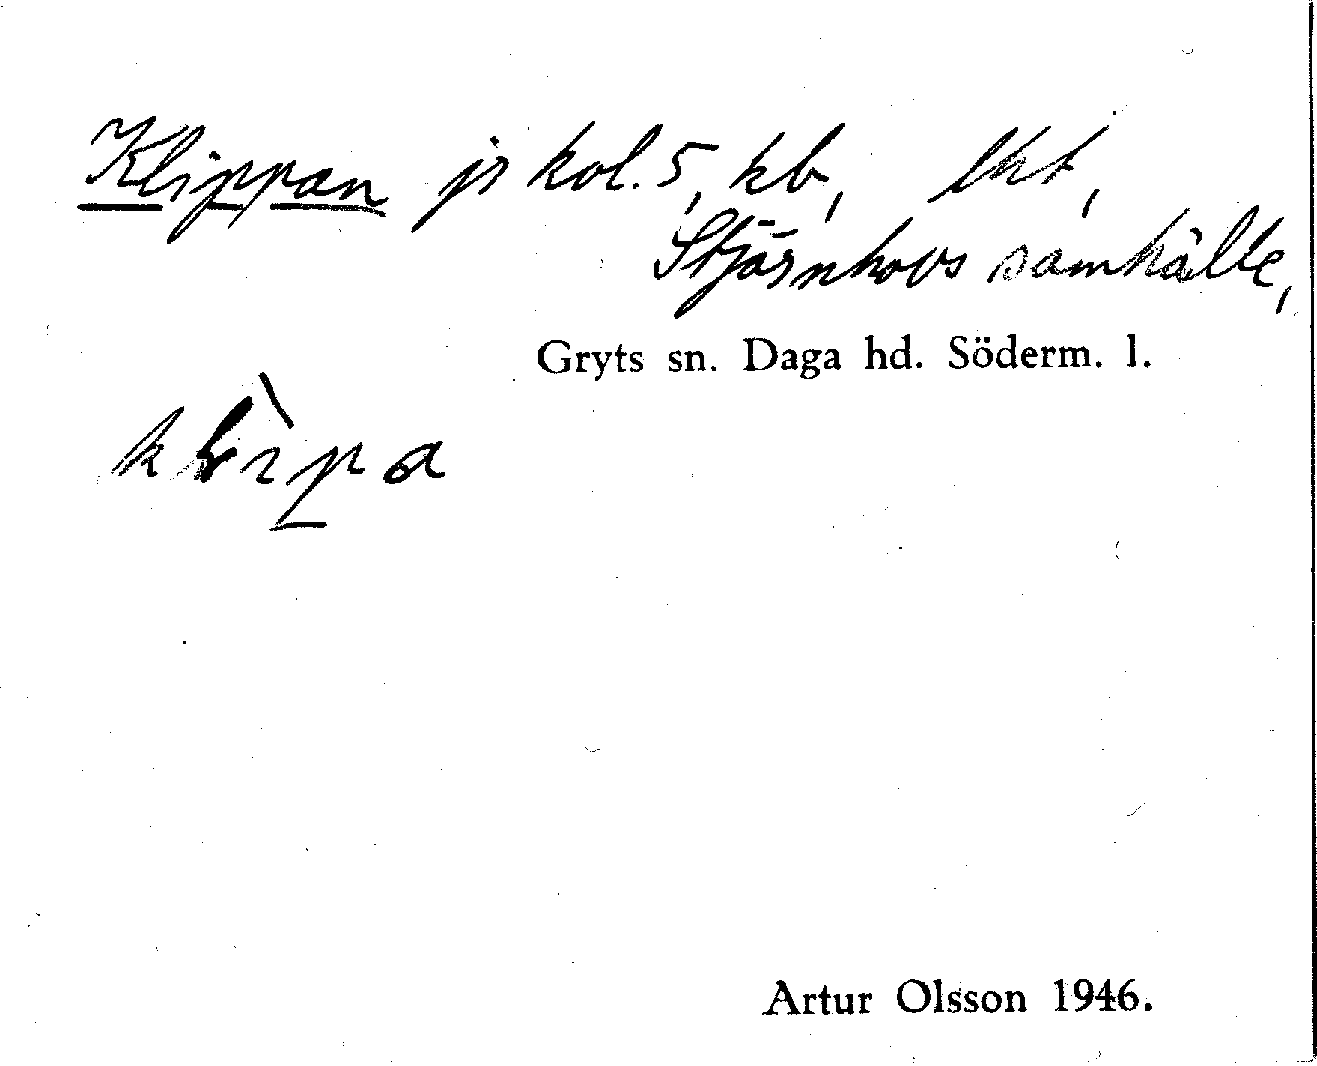 Klippan jr kol. 5, kb, lkt,
Stjärnhovs samhälle,
Gryts sn. Daga hd. Söderm. l.
klìpa
Artur Olsson 1946.